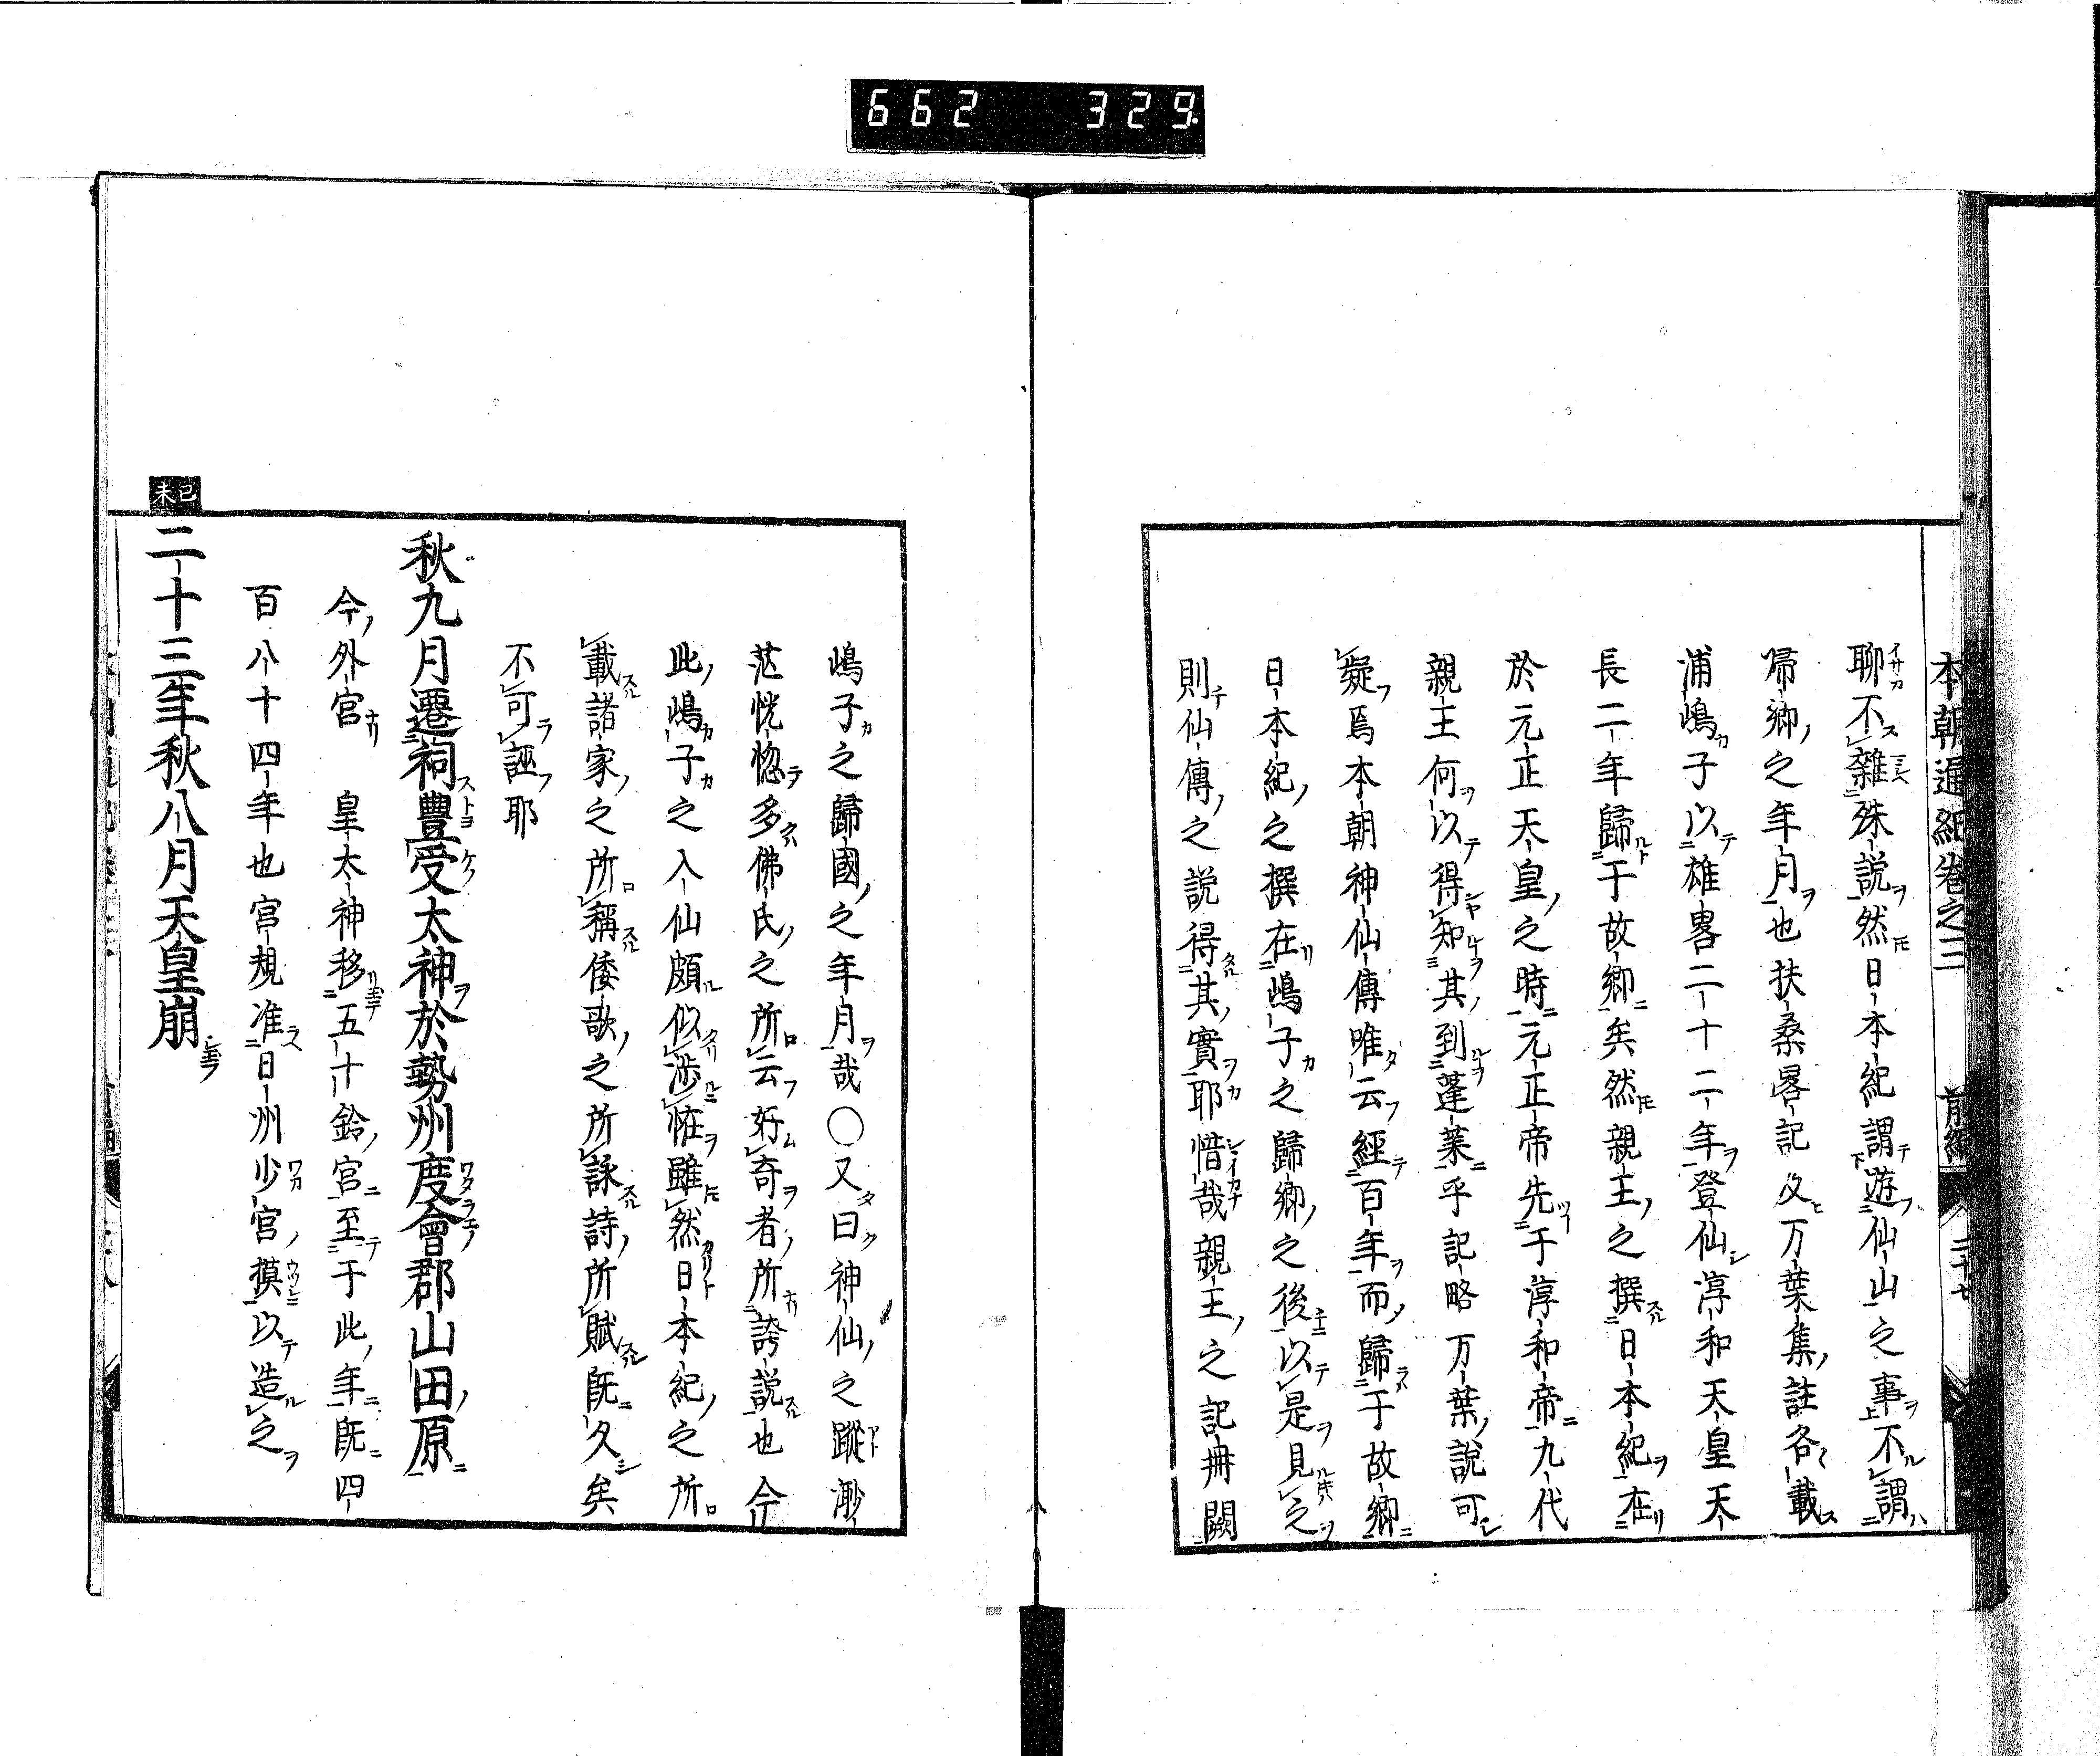 662 329.
本朝通紀卷之三 前編 二十七
聊不雜殊説然日本紀謂遊仙山之事不謂
帰郷之年月也扶桑畧記及万葉集註各載
浦嶋子以雄畧二十二年登仙淳和天皇天
長二年歸于故郷矣然親王之撰日本紀在
於元正天皇之時元正帝先于淳和帝九代
親王何以得知其到蓬莱乎記略万葉説可
疑焉本朝神仙傳唯云經百年而歸于故郷
日本紀之撰在嶋子之歸郷之後以是見之
則仙傳之説得其實耶惜哉親王之記冊闕
嶋子之歸國之年月哉〇又曰神仙之蹤渺
茫恍惚多佛氏之所云好奇者所誇説也今
此嶋子之入仙頗似渉怪雖然日本紀之所
載諸家之所稱倭歌之所詠詩所賦既久矣
不可誣耶
秋九月遷祠豊受太神於勢州度會郡山田原
今外宮 皇太神移五十鈴宮至于此年既四
百八十四年也宮規准日州少宮摸以造之
己未
二十三年秋八月天皇崩